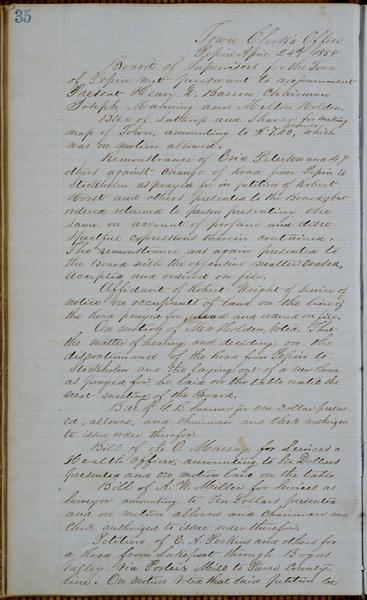 35
Town Clerk's Office
Pepin April 24th 1858
Board of Supervisors for the Town
of Pepin met pursuant to adjournment
Present Henry D. Barron Chairman
Joseph Manning and Milton Holden.
Bill of Lathrop and Shaver for making
map of Town, amounting to $7.00, which
was on motion allowed.
Remonstrance of Eric Peterson and 49
others against Change of Road from Pepin to
Stockholm as prayed for in petition of Robert
Horst and others presented to the Board, but
ordered returned to person presenting the
same, on account of profane and disre
spectful expressions therein contained.
The remonstrance was again presented to
the Board with the offensive matter erased,
accepted and ordered on file.
Affidavit of Robert Wright of service of
notice on occupants of land on the line of
the Road prayed for, read and ordered on file.
On motion of Mr Holden, Voted. That
the matter of hearing and deciding on the
discontinuance of the Road from Pepin to
Stockholm and the laying out of a new road
as prayed for, be laid on the table until the
next meeting of the Board.
Bill of S. B. Sumner for one Dollar present
ed, allowed, and Chairman and Clerk authorized
to issue order therefor.
Bill of O. Maxson for Services as
Health Officer, amounting to Six Dollars
presented and on motion laid on the table
Bill of A. W. Miller for Services as
Surveyor amounting to Ten Dollars, presented
and on motion allowed and chairman and
clerk authorized to issue order therefor.
Petition of E. A. Perkins and others for
a Road from Lakeport through Bogus
Valley via Porter's Mill to Pierce County
line. On motion Voted that said petition be